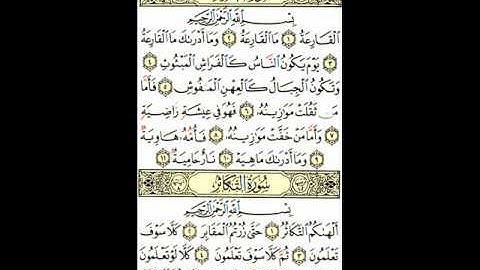 بِسْمِ ٱللَّهِ ٱلرَّحْمَٰنِ ٱلرَّحِيمِ
ٱلْقَارِعَةُ ١ مَا ٱلْقَارِعَةُ ٢ وَمَآ أَدْرَىٰكَ مَا ٱلْقَارِعَةُ
٣ يَوْمَ يَكُونُ ٱلنَّاسُ كَٱلْفَرَاشِ ٱلْمَبْثُوثِ ٤
وَتَكُونُ ٱلْجِبَالُ كَٱلْعِهْنِ ٱلْمَنفُوشِ ٥ فَأَمَّا
مَن ثَقُلَتْ مَوَٰزِينُهُۥ ٦ فَهُوَ فِى عِيشَةٍ رَّاضِيَةٍ
٧ وَأَمَّا مَنْ خَفَّتْ مَوَٰزِينُهُۥ ٨ فَأُمُّهُۥ هَاوِيَةٌ
٩ وَمَآ أَدْرَىٰكَ مَا هِيَهْ ١٠ نَارٌ حَامِيَةٌۢ ١١
سُورَةُ ٱلتَّكَاثُرِ
بِسْمِ ٱللَّهِ ٱلرَّحْمَٰنِ ٱلرَّحِيمِ
أَلْهَىٰكُمُ ٱلتَّكَاثُرُ ١ حَتَّىٰ زُرْتُمُ ٱلْمَقَابِرَ ٢ كَلَّا سَوْفَ
تَعْلَمُونَ ٣ ثُمَّ كَلَّا سَوْفَ تَعْلَمُونَ ٤ كَلَّا لَوْ تَعْلَمُونَ